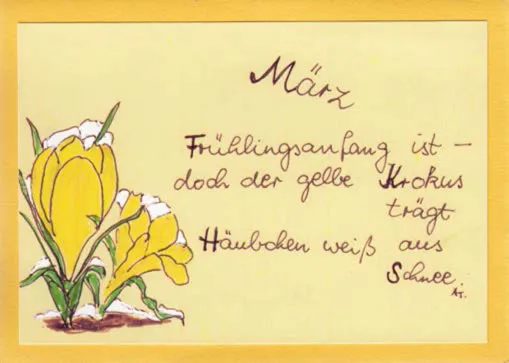 März
Frühlingsanfang ist –
doch der gelbe Krokus
trägt
Häubchen weiß aus
Schnee.
AT.